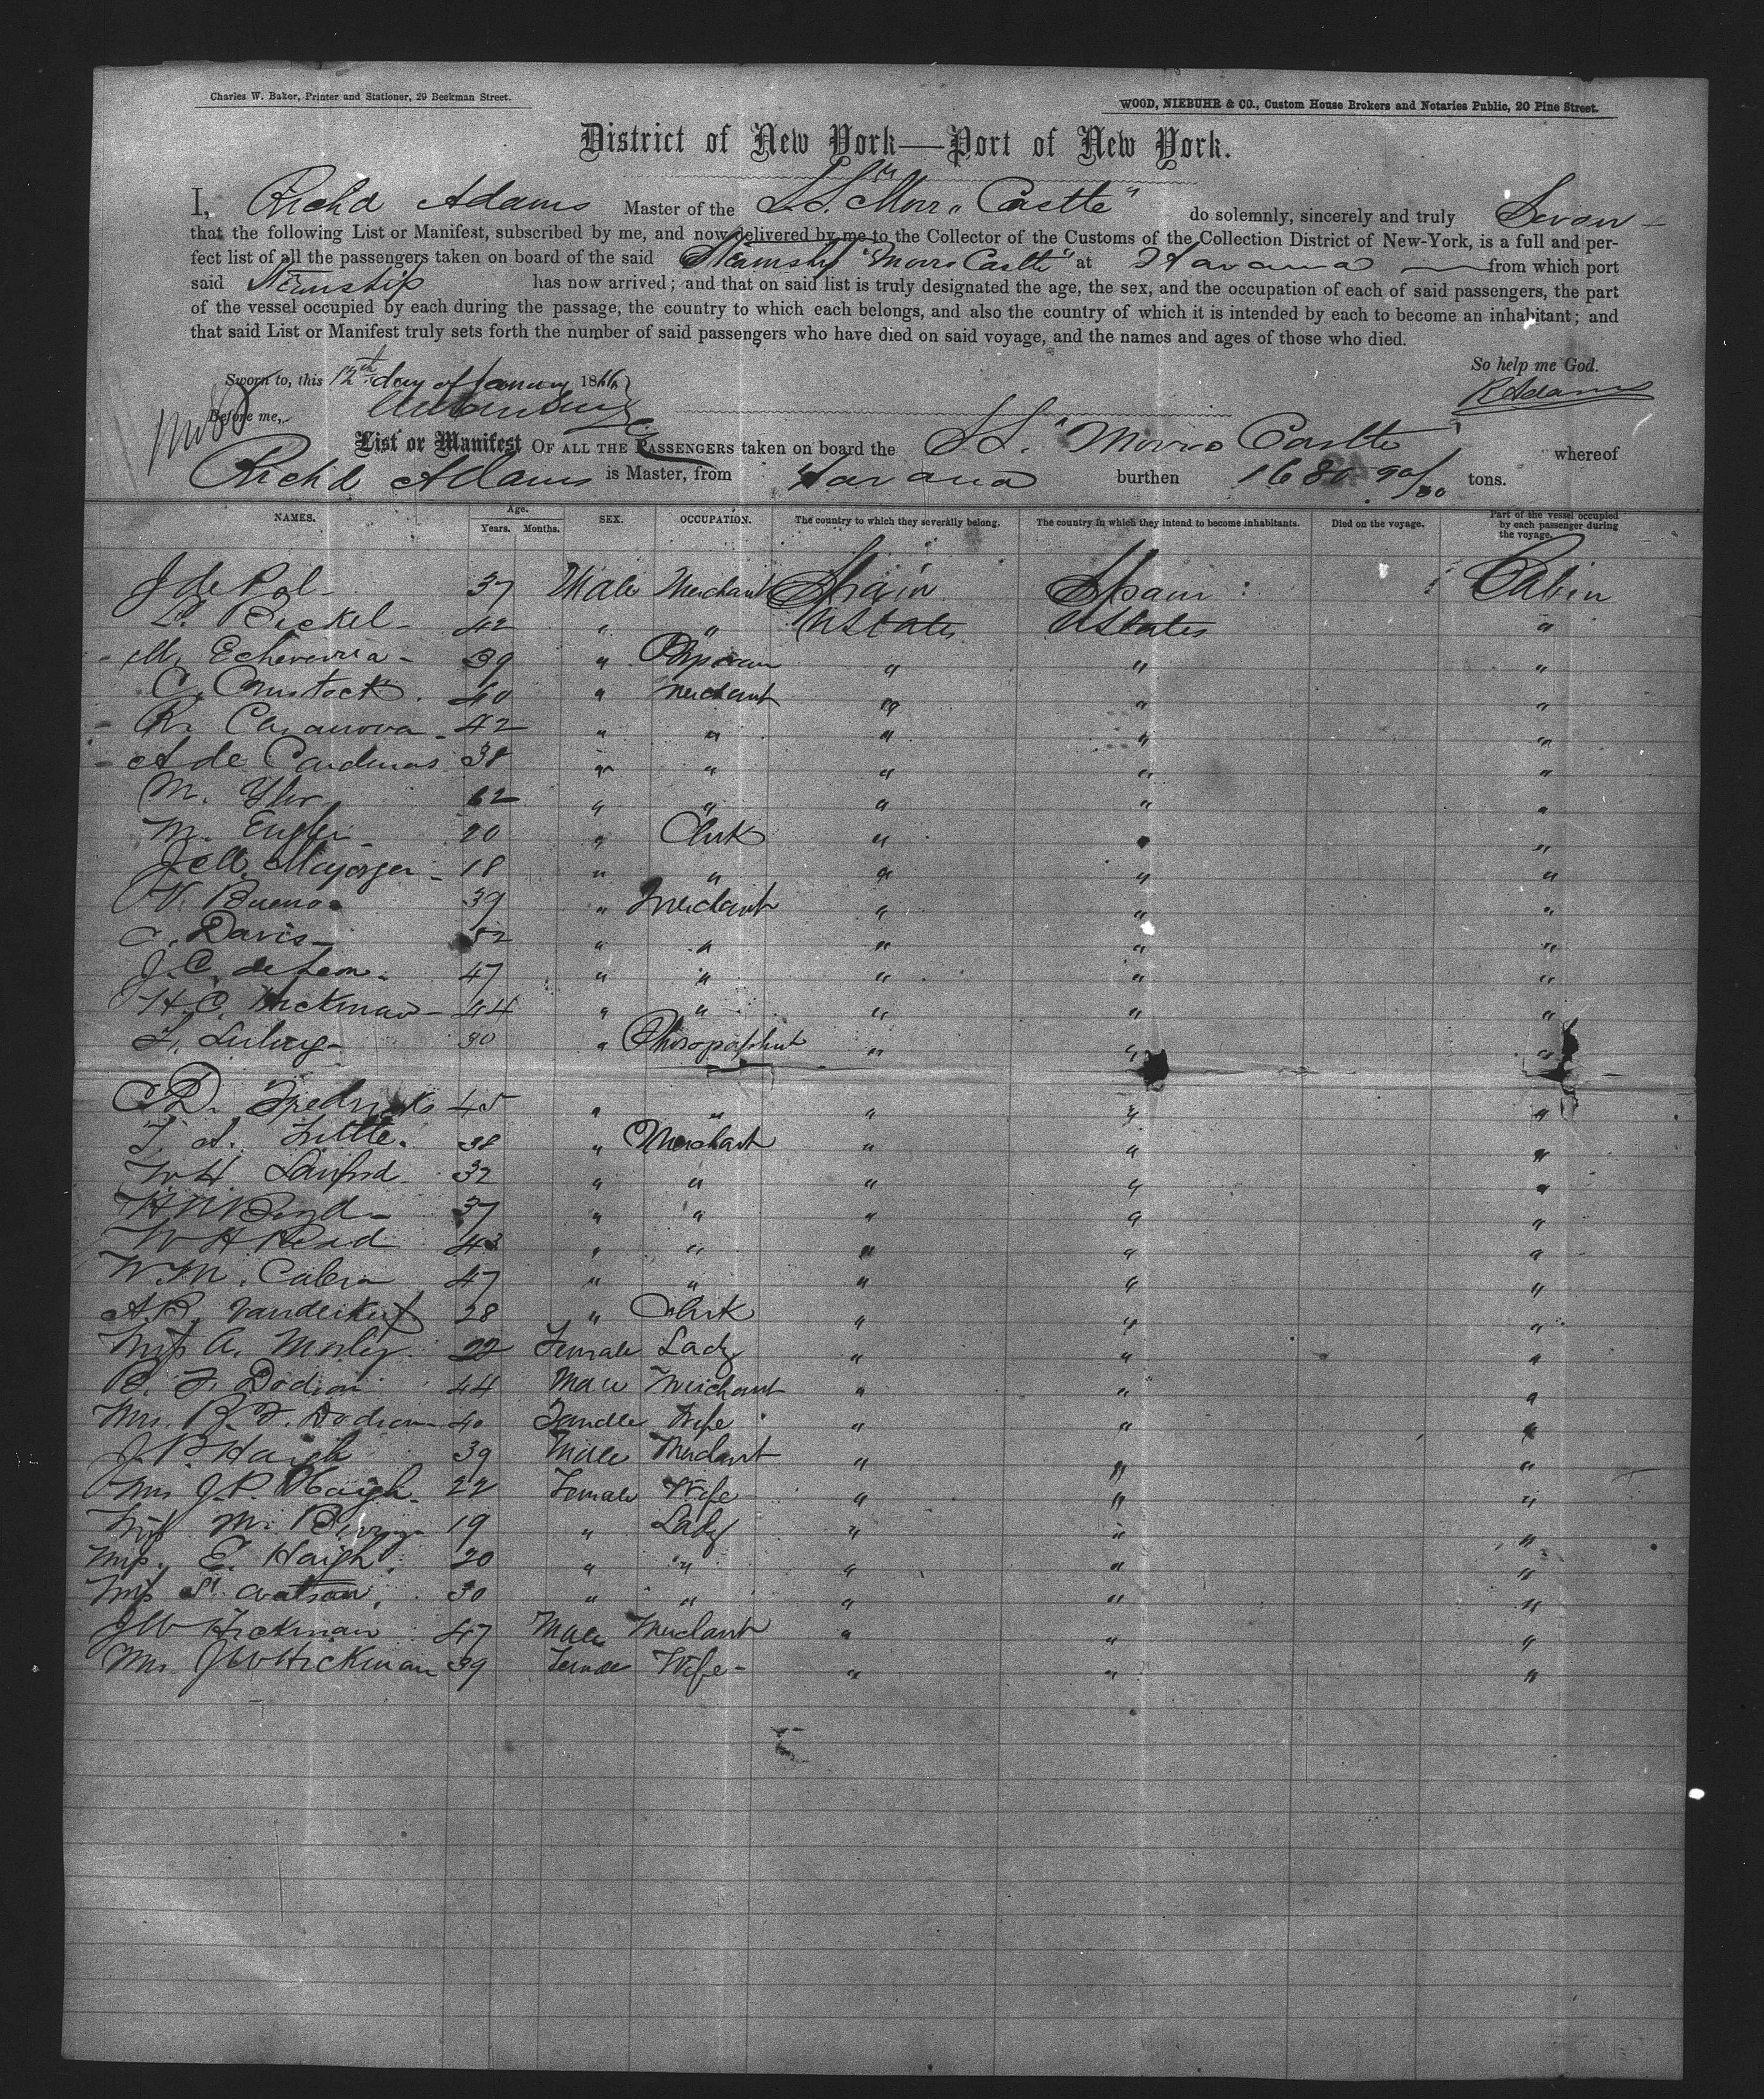 Charles W. Baker, Printer and Stationer, 29 Beekman Street.
WOOD, NIEBUHR & CO., Custom House Brokers and Notaries Public, 20 Pine Street.
District of New York—Port of New York.
I, Richd Adams Master of the S.S. "Morro Castle" do solemnly, sincerely and truly Swear
that the following List or Manifest, subscribed by me, and now delivered by me to the Collector of the Customs of the Collection District of New-York, is a full and per-
fect list of all the passengers taken on board of the said Steamship "Morro Castle" at Havana from which port
said Steamship has now arrived; and that on said list is truly designated the age, the sex, and the occupation of each of said passengers, the part
of the vessel occupied by each during the passage, the country to which each belongs, and also the country of which it is intended by each to become an inhabitant; and
that said List or Manifest truly sets forth the number of said passengers who have died on said voyage, and the names and ages of those who died.
So help me God.
Sworn to, this 12th day of January 1866
R Adams
Before me,
List or Manifest OF ALL THE PASSENGERS taken on board the S.S. "Morro Castle" whereof
Richd Adams is Master, from Havana burthen 1680 90/ tons.
NAMES. Age. Years. Months. SEX. OCCUPATION. The country to which they severally belong. The country in which they intend to become inhabitants. Died on the voyage. Part of the vessel occupied by each passenger during the voyage.
J de Pol 37 Male Merchant Spain Spain Cabin
L. Beckel 42 " " UStates UStates "
M. Echeverria 39 " " " "
C. Comstock 40 " Merchant " " "
R. Casanova 42 " " " " "
A de Cardenas 38 " " " " "
M. " " " " "
M. 20 " Clerk " " "
J M. 18 " " " " "
V. Bueno 39 " Merchant " " "
C. Davis 52 " " " " "
J. C. de Leon 47 " " " " "
H. C. Hickman 44 " " " " "
F. 30 " " " "
C D. Fredricks 45 " " " " "
T. A. Little 38 " Merchant " " "
W H. Sanford 32 " " " " "
H Boyd 37 " " " " "
W H Read 43 " " " " "
W. M. 47 " " " " "
A. B. 28 " Clerk " " "
Miss A. 22 Female Lady " " "
B. F. Dodson 44 Male Merchant " " "
Mrs. B. F. Dodson 40 Female Wife " " "
J. P. Haigh 39 Male Merchant " " "
Mrs J. P. Haigh 22 Female Wife " " "
Miss M. 19 " Lady " " "
Miss E. Haigh 20 " " " " "
Miss S. Watson 30 " " " " "
J W Hickman 47 Male Merchant " " "
Mrs J W Hickman 39 Female Wife " " "